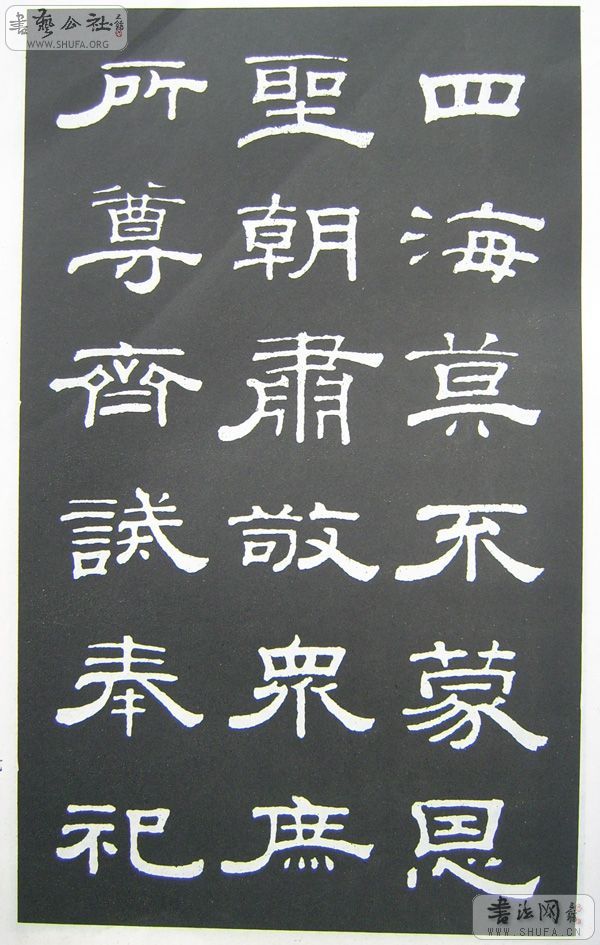 四海莫不蒙恩
聖朝肅敬衆庶
所尊齊誠奉祀
書藝公社
WWW.SHUFA.ORG
书法网
WWW.SHUFA.CN